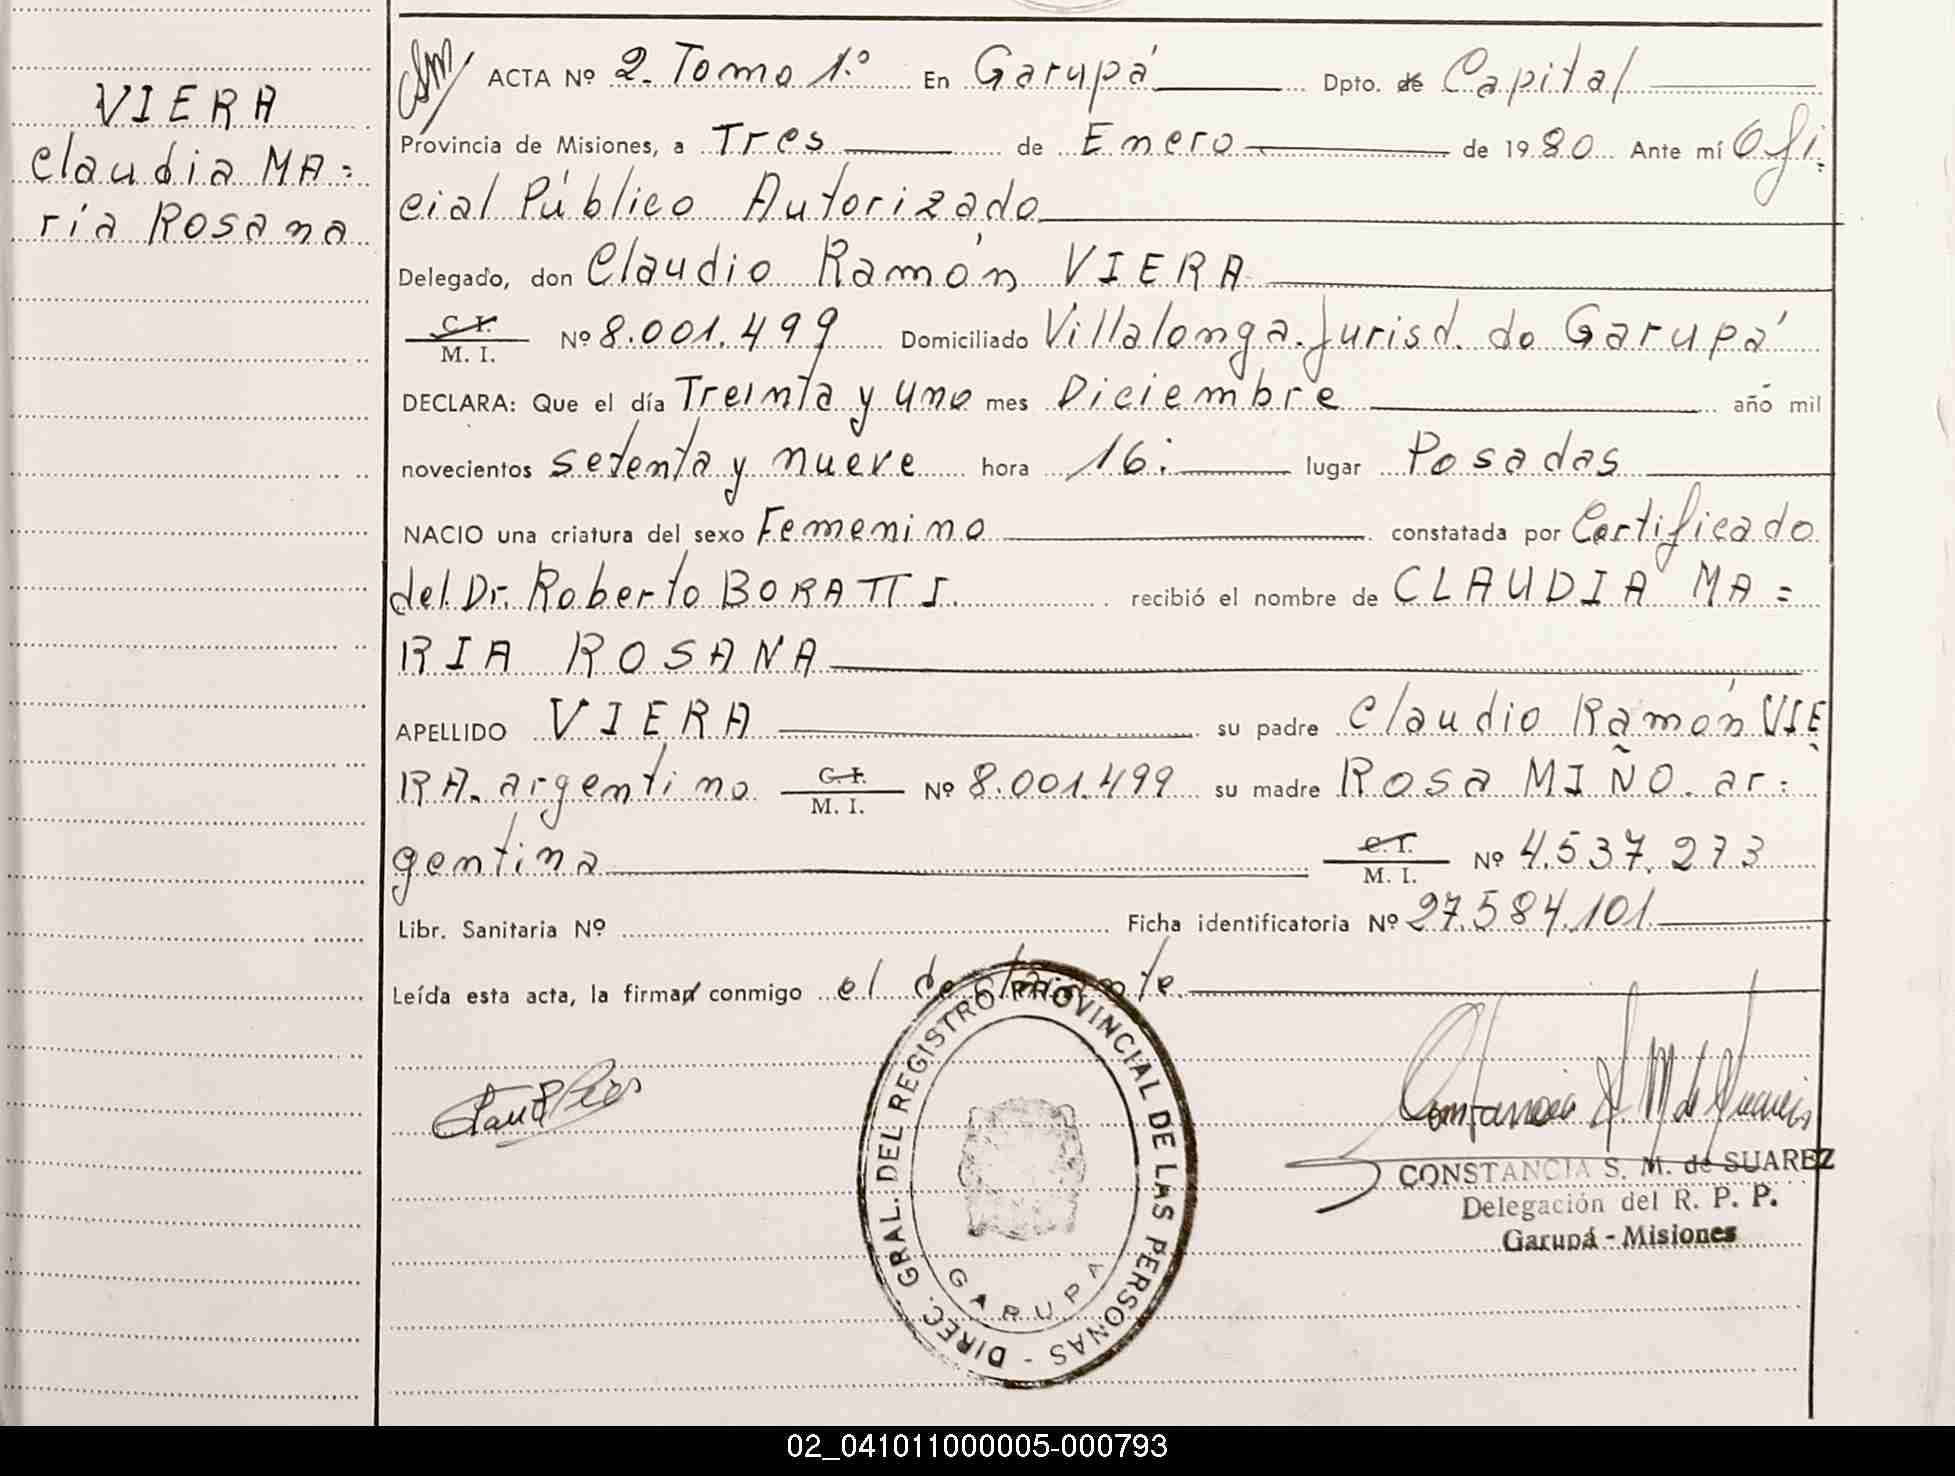 VIERA
Claudia MA=
ria Rosana
ACTA Nº 2. Tomo 1.º En Garupá Dpto. de Capital
Provincia de Misiones, a Tres de Enero de 1980 Ante mí Ofi=
cial Público Autorizado
Delegado, don Claudio Ramón VIERA
C. I.
M. I. Nº 8.001.499 Domiciliado Villalonga. Jurisd. de Garupá
DECLARA: Que el día Treinta y uno mes Diciembre año mil
novecientos setenta y nueve hora 16: lugar Posadas
NACIO una criatura del sexo Femenino constatada por Certificado
del Dr. Roberto BORATTI. recibió el nombre de CLAUDIA MA=
RIA ROSANA
APELLIDO VIERA su padre Claudio Ramón VIE=
RA. argentino C. I.
M. I. Nº 8.001.499 su madre Rosa MIÑO. ar=
gentina C. I.
M. I. Nº 4.537.273
Libr. Sanitaria Nº Ficha identificatoria Nº 27.584.101
Leída esta acta, la firman conmigo el declarante.
DIREC. GRAL. DEL REGISTRO PROVINCIAL DE LAS PERSONAS -
GARUPA
CONSTANCIA S. M. de SUAREZ
Delegación del R. P. P.
Garupá - Misiones
02_041011000005-000793